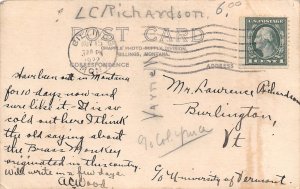 LC Richardson
6.00
POST CARD
PHOTO SUPPLY DIVISION
BILLINGS, MONTANA
CORRESPONDENCE
ADDRESS
Have been out in Montana
for 10 days now and
sure like it. It is so
cold out here I think
the old saying about
the Brass Monkey
originated in this country.
Will write in a few days.
A.C. Wood.
Mr. Lawrence Richardson
Burlington,
Vt
c/o University of Vermont.